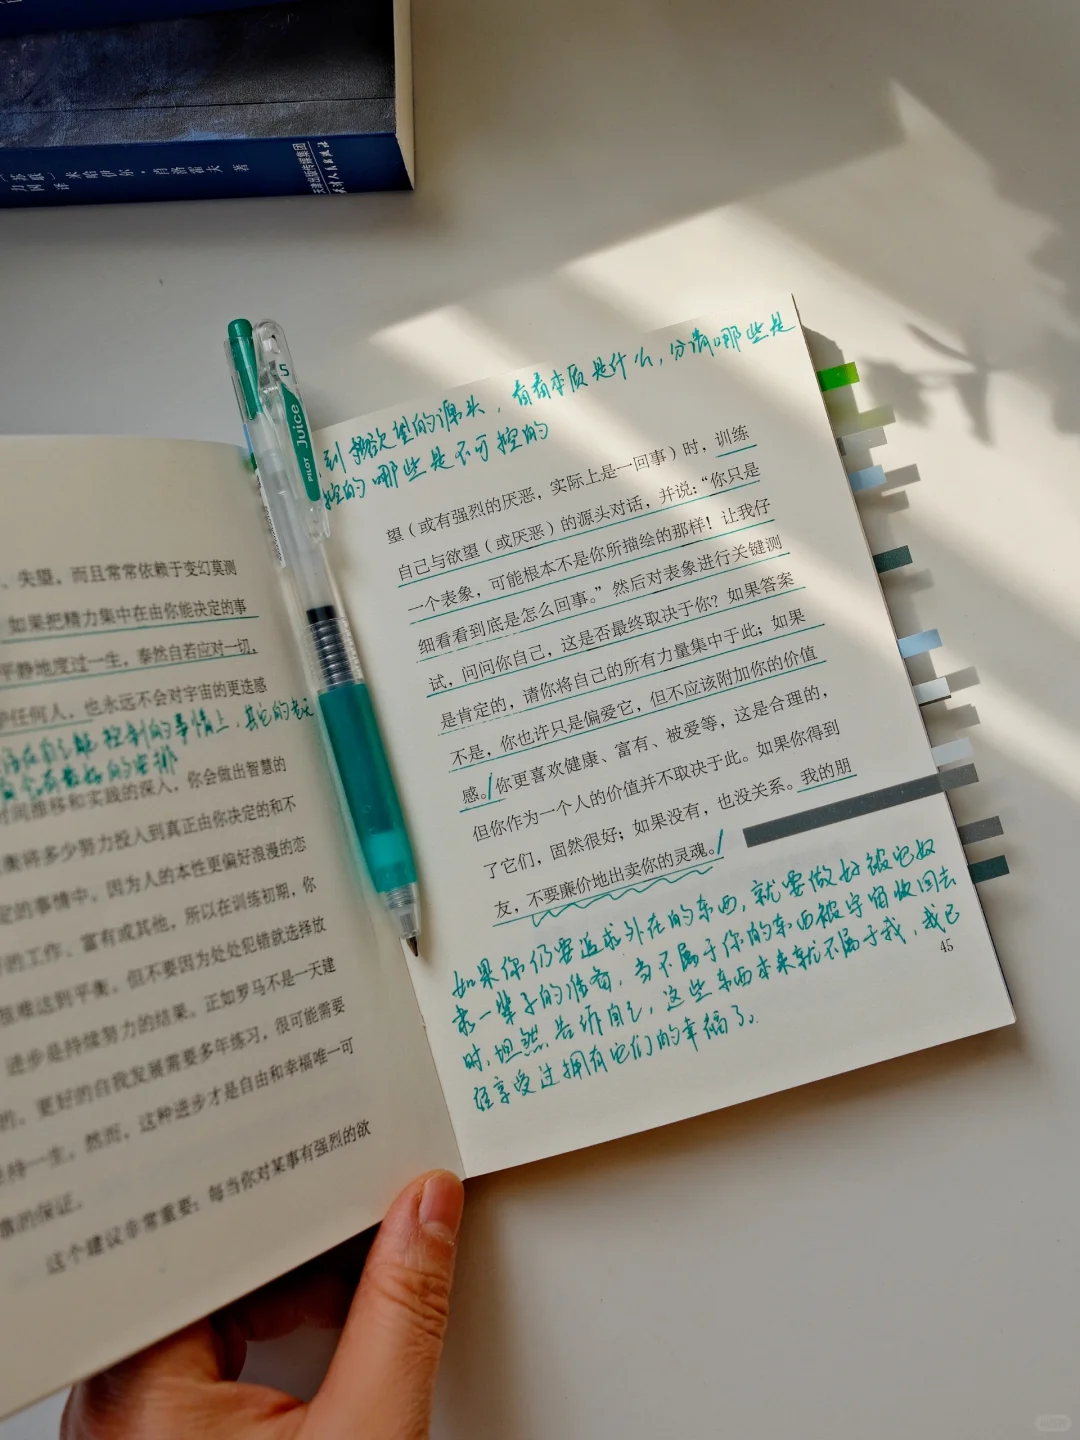 （苏联）米哈伊尔·肖洛霍夫 著
力冈 译
天津出版传媒集团
天津人民出版社
、失望。而且常常依赖于变幻莫测
如果把精力集中在由你能决定的事
平静地度过一生，泰然自若应对一切，
任何人，也永远不会对宇宙的更迭感
在自己能控制的事情上，其它的
会有最好的安排
时间推移和实践的深入，你会做出智慧的
衡将多少努力投入到真正由你决定的和不
定的事情中。因为人的本性更偏好浪漫的恋
的工作、富有或其他，所以在训练初期，你
很难达到平衡，但不要因为处处犯错就选择放
进步是持续努力的结果。正如罗马不是一天建
的。更好的自我发展需要多年练习，很可能需要
坚持一生。然而，这种进步才是自由和幸福唯一可
靠的保证。
这个建议非常重要：每当你对某事有强烈的欲
5
Juice
PILOT
到欲望的源头，看看本质是什么，分清哪些是
控的哪些是不可控的
望（或有强烈的厌恶，实际上是一回事）时，训练
自己与欲望（或厌恶）的源头对话，并说：“你只是
一个表象，可能根本不是你所描绘的那样！让我仔
细看看到底是怎么回事。”然后对表象进行关键测
试，问问你自己，这是否最终取决于你？如果答案
是肯定的，请你将自己的所有力量集中于此；如果
不是，你也许只是偏爱它，但不应该附加你的价值
感。你更喜欢健康、富有、被爱等，这是合理的，
但你作为一个人的价值并不取决于此。如果你得到
了它们，固然很好；如果没有，也没关系。我的朋
友，不要廉价地出卖你的灵魂。
如果你仍要追求外在的东西，就要做好被它奴
隶一辈子的准备，当不属于你的东西被宇宙收回去
时，坦然告诉自己，这些东西本来就不属于我，我已
经享受过拥有它们的幸福了。
45